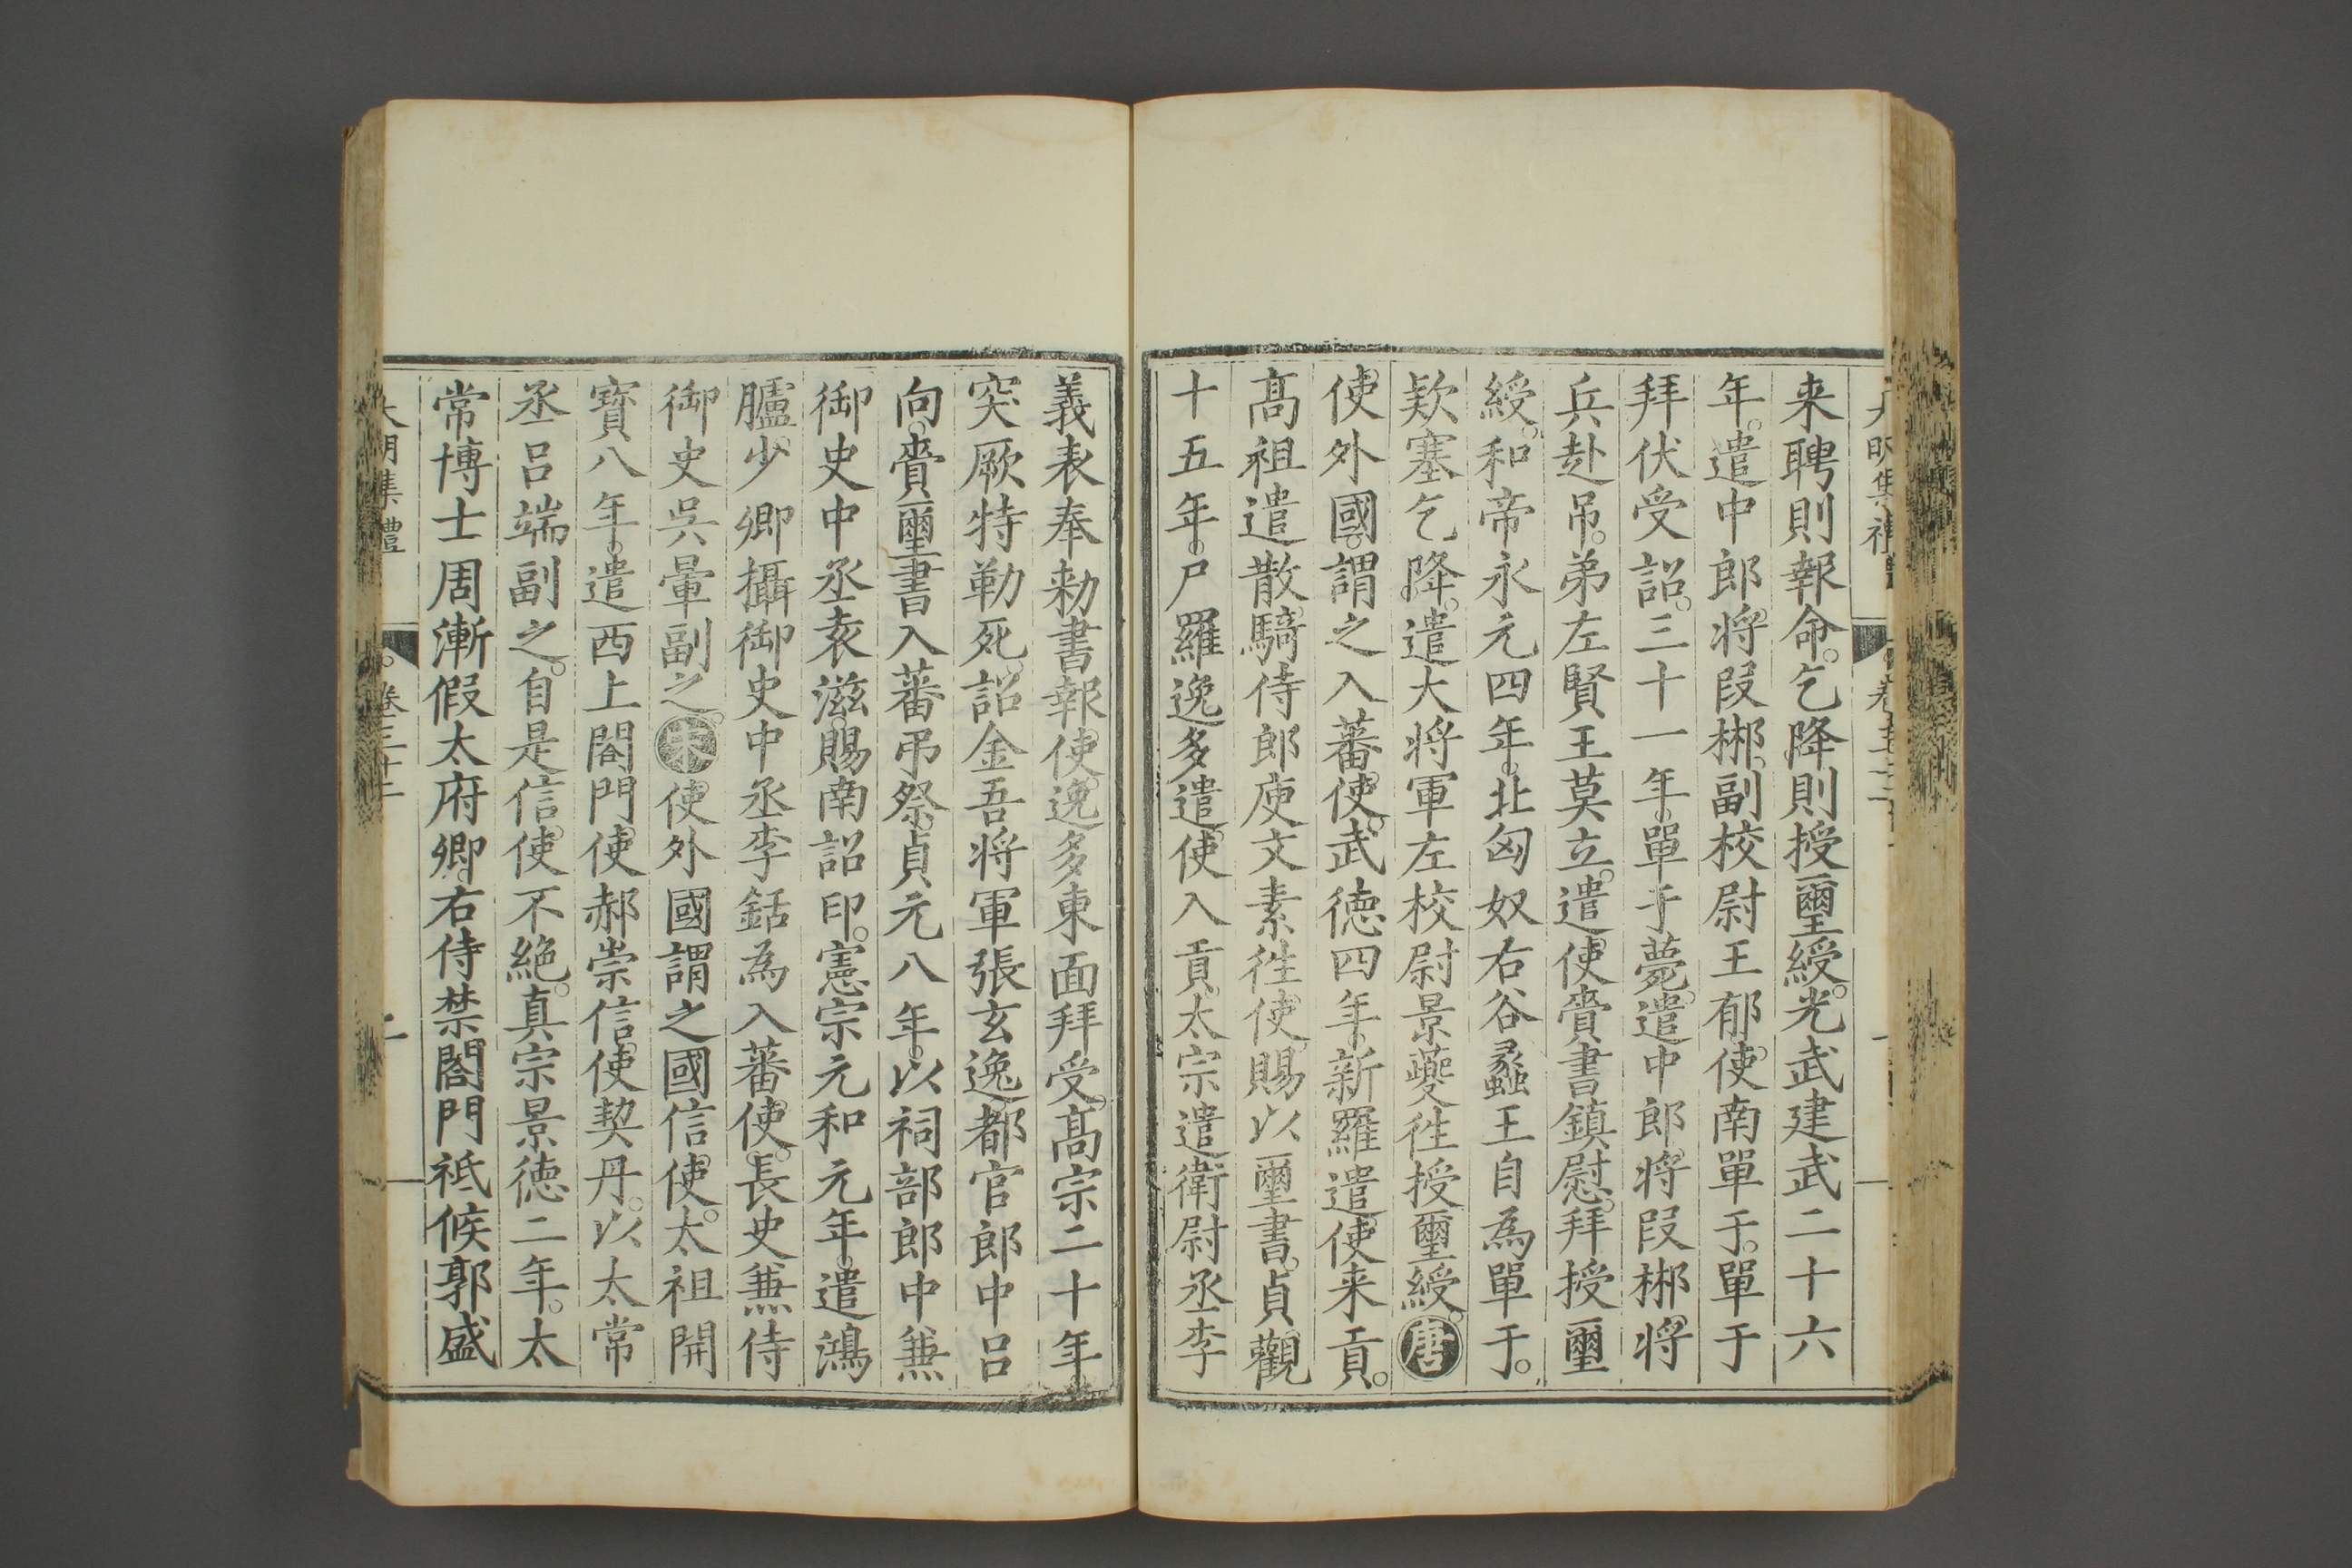 来聘則報命。乞降則授璽綬。光武建武二十六
年。遣中郎將段郴。副校尉王郁。使南單于。單于
拜伏受詔。三十一年。單于薨。遣中郎將段郴。將
兵赴吊。弟左賢王莫立。遣使賫書鎮慰。拜授璽
綬。和帝永元四年。北匈奴右谷蠡王自為單于。
欵塞乞降。遣大將軍左校尉景夔徃授璽綬。唐
使外國。謂之入蕃使。武德四年。新羅遣使来貢。
髙祖遣散騎侍郎庾文素徃使。賜以璽書。貞觀
十五年。尸羅逸多遣使入貢。太宗遣衛尉丞李
義表奉勑書報使。逸多東面拜受。髙宗二十年。
突厥特勒死。詔金吾將軍張玄逸。都官郎中呂
向。賫璽書入蕃弔祭。貞元八年。以祠部郎中兼
御史中丞袁滋。賜南詔印。憲宗元和元年。遣鴻
臚少卿攝御史中丞李銛為入蕃使。長史兼侍
御史吳暈副之。宋使外國謂之國信使。太祖開
寶八年。遣西上閤門使郝崇信使契丹。以太常
丞呂端副之。自是信使不絶。真宗景德二年。太
常博士周漸假太府卿。右侍禁閤門祗候郭盛
大明集禮
卷三十二
二